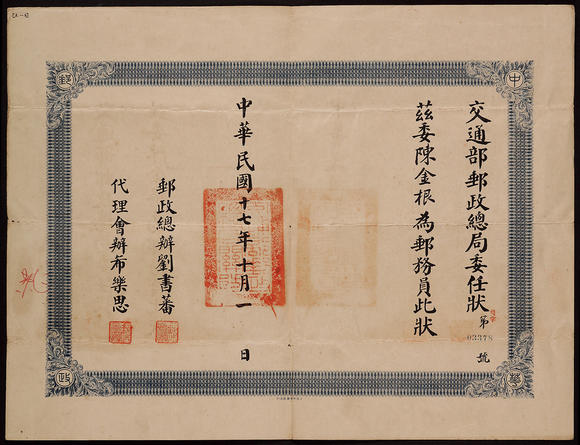 交通部郵政總局委任狀
第03378號
茲委陳金根為郵務員此狀
中華民國十七年十月一日
郵政總辦劉書蕃
代理會辦布樂思
中
華
郵
政